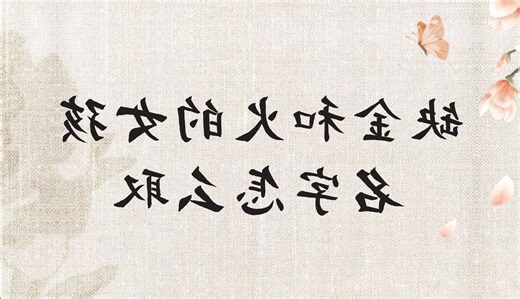 缺金和火的女孩
名字怎么取